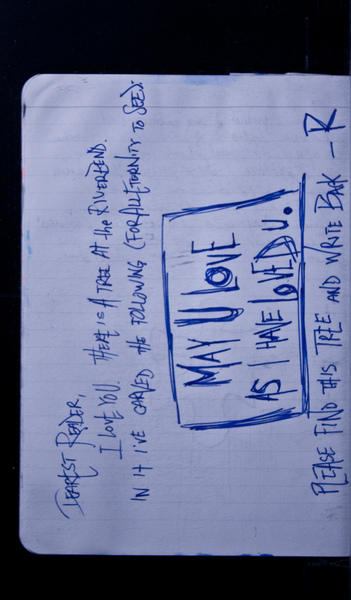 DEAREST READER,
I LOVE YOU. THERE IS A TREE AT the RIVERBEND.
IN it I'VE CARVED the FOLLOWING (FOR ALL ETERNITY TO SEE):
MAY U LOVE
AS I HAVE LOVED U.
PLEASE FIND this TREE AND WRITE BACK – R